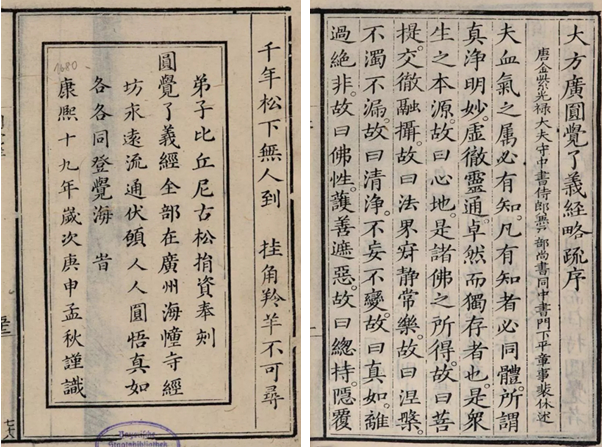 大方廣圓覺了義経略疏序
唐金紫光祿大夫守中書侍郎兼戶部尚書同中書門下平章事裴休述
夫血氣之属必有知。凡有知者必同體。所謂
真淨明妙。虛徹靈通。卓然而獨存者也。是衆
生之本源。故曰心地。是諸佛之所得。故曰菩
提。交徹融攝。故曰法界。寂静常樂。故曰涅槃。
不濁不漏。故曰清淨。不妄不變。故曰真如。離
過絕非。故曰佛性。護善遮惡。故曰總持。隱覆
千年松下無人到 挂角羚羊不可尋
弟子比丘尼古松捐資奉刻
圓覺了義經全部在廣州海幢寺經
坊永遠流通伏願人人圓悟真如
各各同登覺海 旹
康熙十九年歲次庚申孟秋謹識
1680
Bayerische
Staatsbibliothek